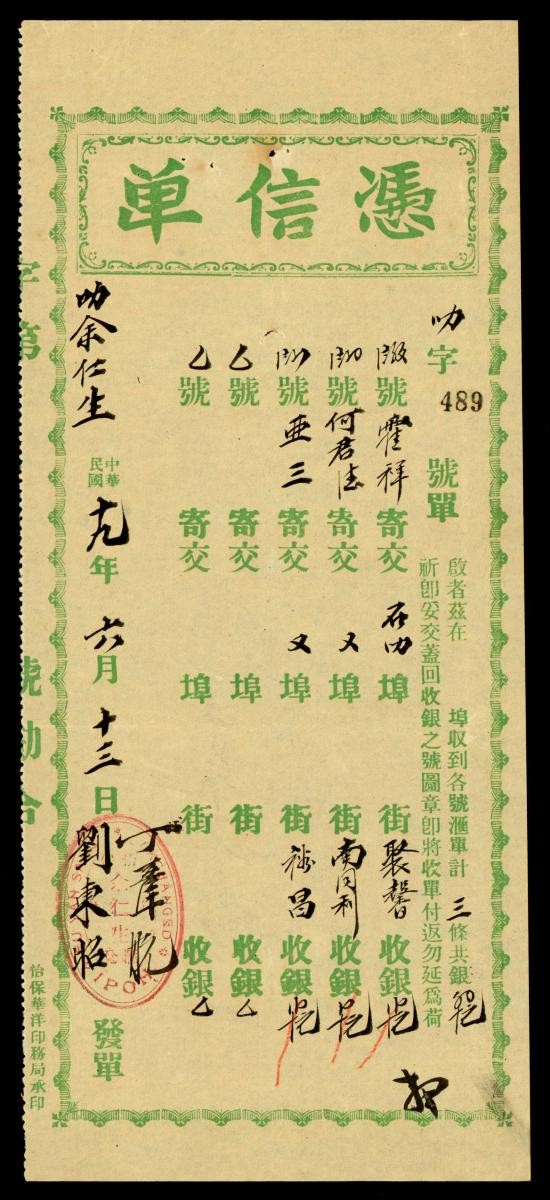 憑信单
叻字
489
號單
啟者茲在 埠收到各號滙單計三條共銀
祈即妥交蓋回收銀之號圖章即將收單付返勿延爲荷
號霍祥寄交石叻埠 街聚馨收銀
號何君 寄交又埠 街南同利收銀
號亜三寄交又埠 街 昌收銀
乙號 寄交 埠 街 收銀乙
乙號 寄交 埠 街 收銀乙
叻余仁生
中華民國十九年六月十三日
劉東昭
發單
余仁生
IPOH
字第 號勘合
怡保華洋印務局承印